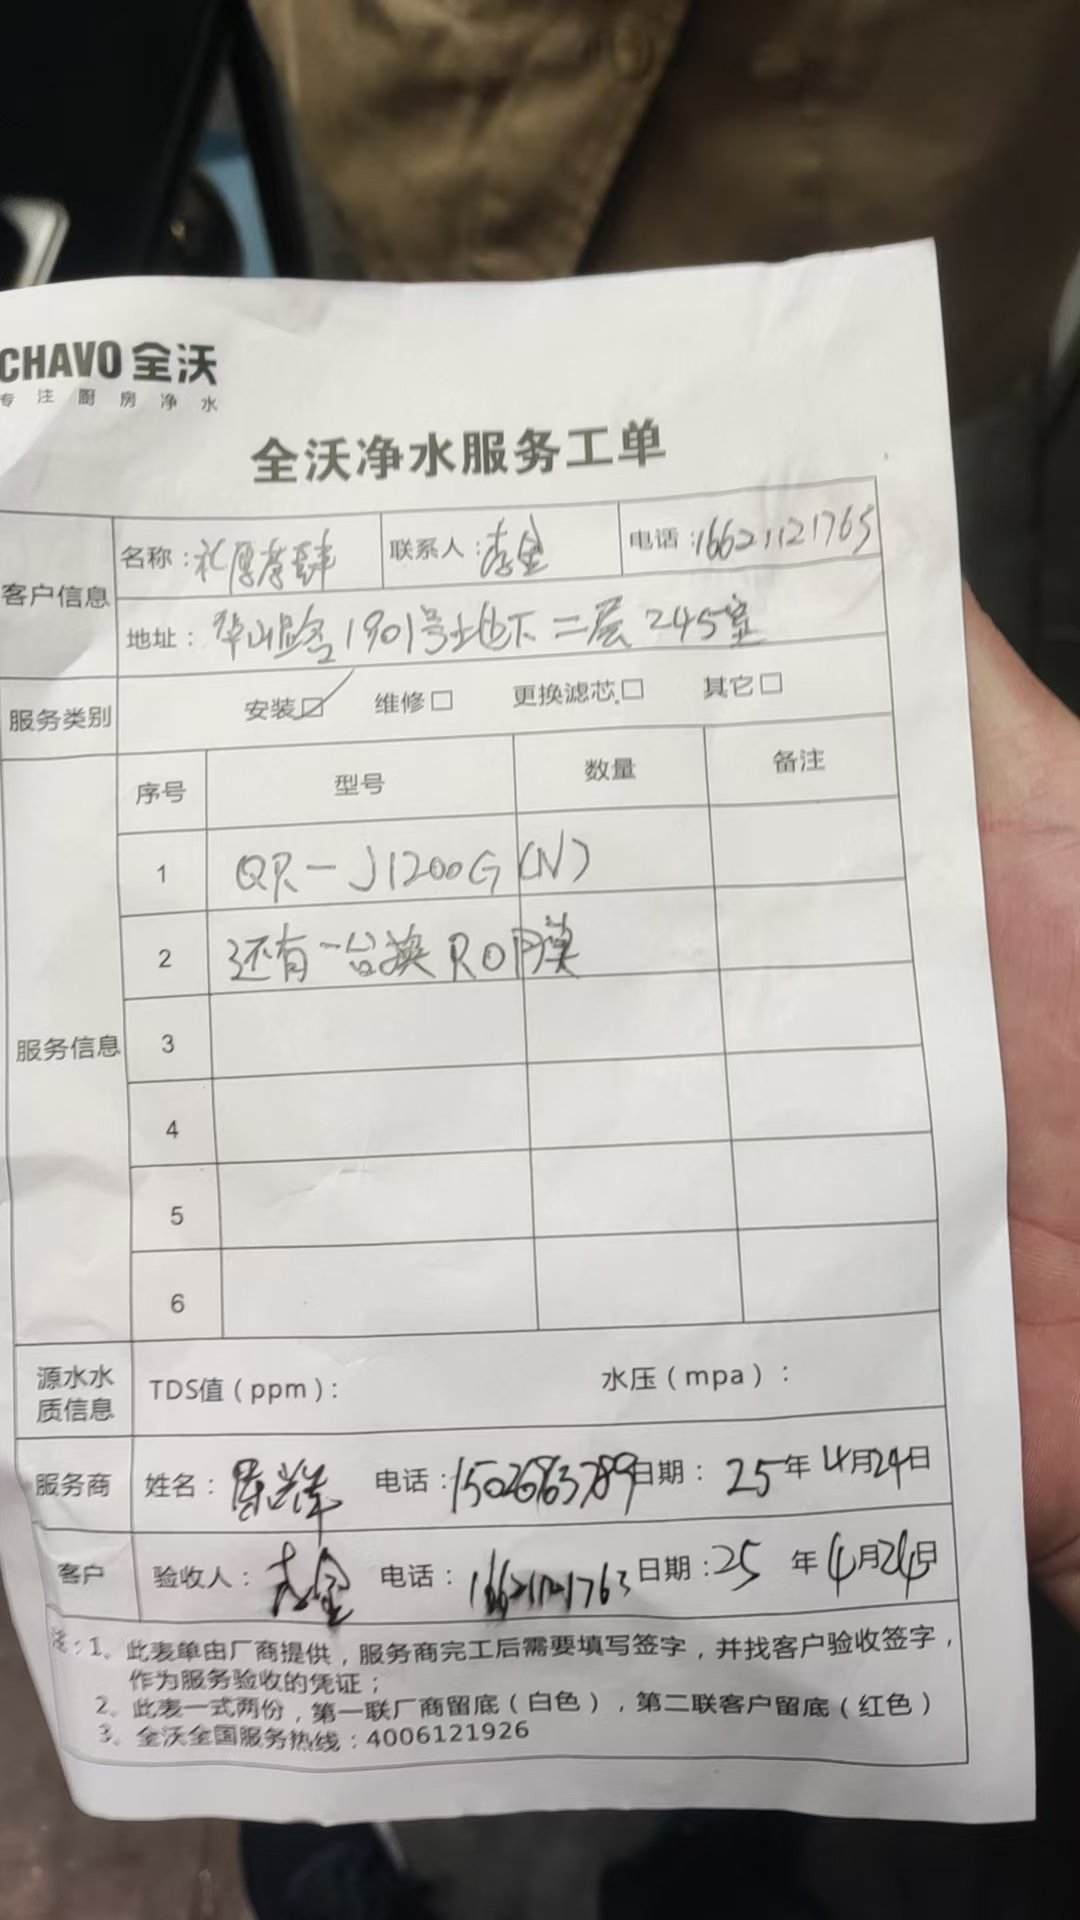 CHAVO 全沃
专注厨房净水
全沃净水服务工单
客户信息 名称: 联系人: 电话:
地址: 华山路1901号地下二层245室
服务类别 安装☑ 维修□ 更换滤芯□ 其它□
服务信息 序号 型号 数量 备注
1 QR-J1200G(N)
2 还有一台换RO膜
3
4
5
6
源水水质信息 TDS值(ppm): 水压(mpa):
服务商 姓名: 电话: 日期: 25年4月24日
客户 验收人: 电话: 日期: 25年4月24日
注:1、此表单由厂商提供,服务商完工后需要填写签字,并找客户验收签字,
作为服务验收的凭证;
2、此表一式两份,第一联厂商留底(白色),第二联客户留底(红色)
3、全沃全国服务热线:4006121926